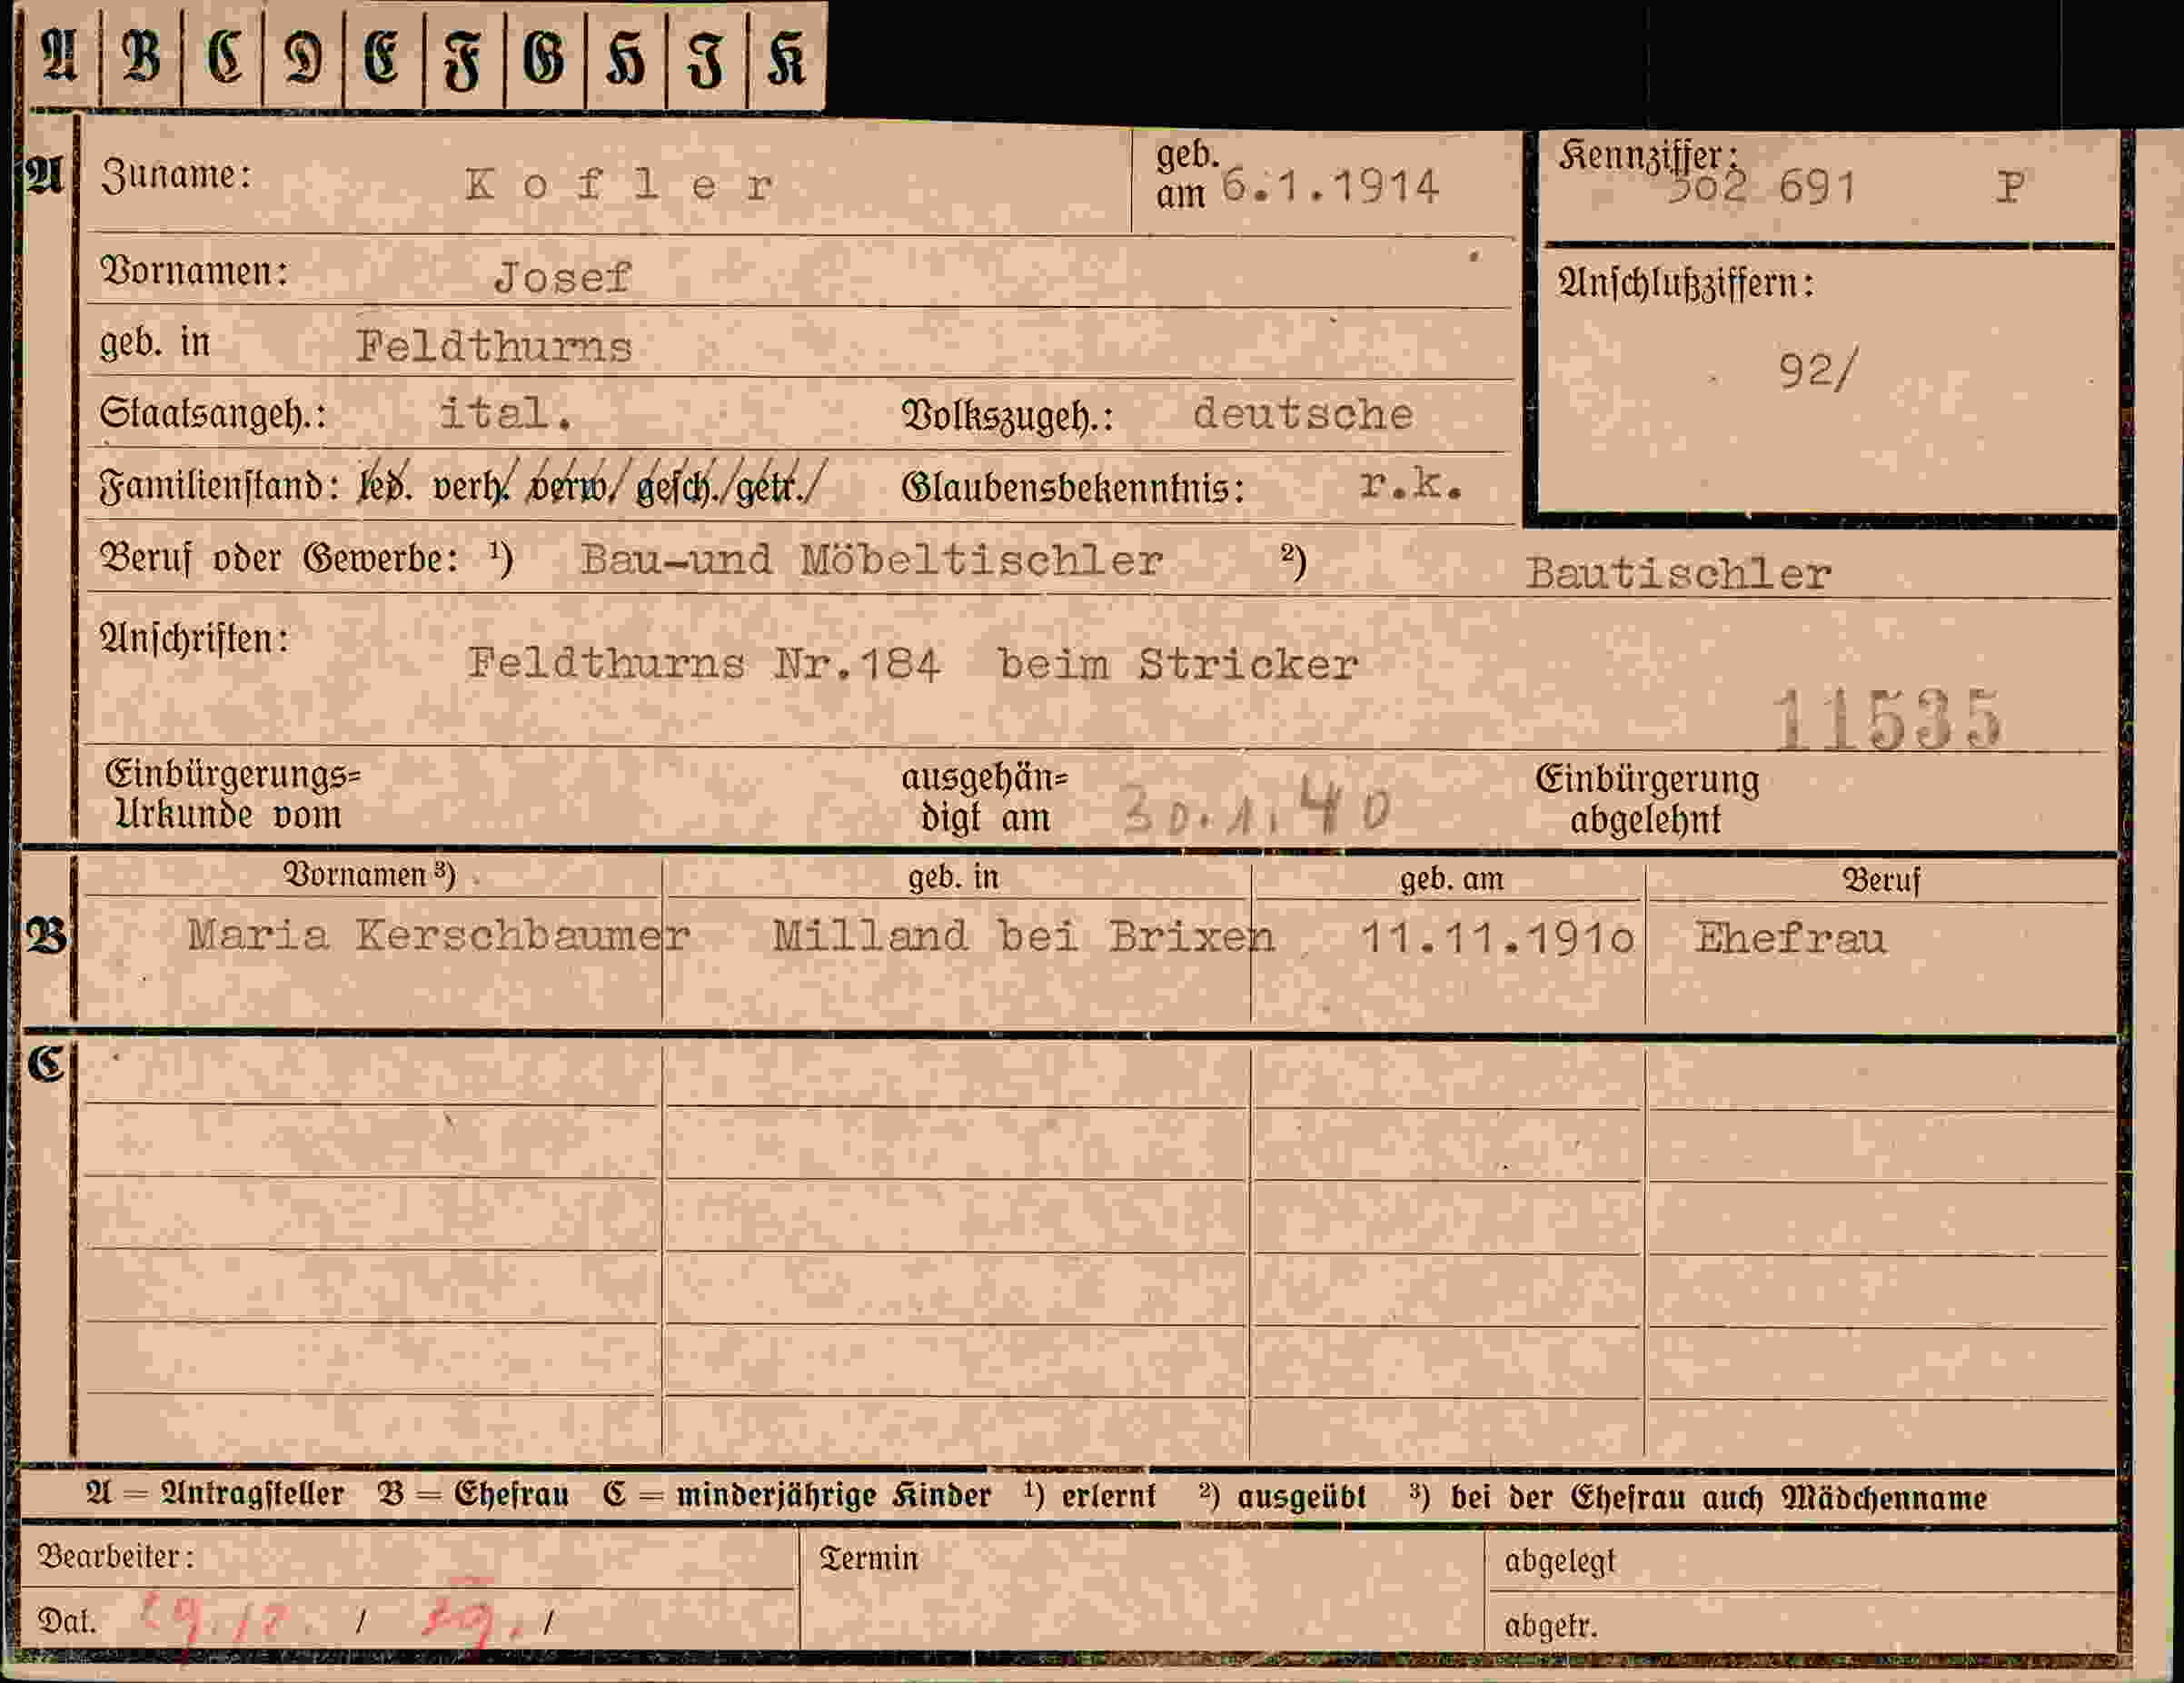 A B C D E F G H I K
A Zuname: Kofler geb. am 6.1.1914 Kennziffer: 502 691 P
Vornamen: Josef
Anschlußziffern:
geb. in Feldthurns
92/
Staatsangeh.: ital. Volkszugeh.: deutsche
Familienstand: led. verh. verw. gesch./getr./ Glaubensbekenntnis: r.k.
Beruf oder Gewerbe: ¹) Bau-und Möbeltischler ²) Bautischler
Anschriften: Feldthurns Nr.184 beim Stricker
11535
Einbürgerungs=
Urkunde vom
ausgehän=
digt am 30.1.40
Einbürgerung
abgelehnt
Vornamen ³) geb. in geb. am Beruf
B Maria Kerschbaumer Milland bei Brixen 11.11.191o Ehefrau
C
A = Antragsteller B = Ehefrau C = minderjährige Kinder ¹) erlernt ²) ausgeübt ³) bei der Ehefrau auch Mädchenname
Bearbeiter: Termin abgelegt
Dat. / / abgetr.